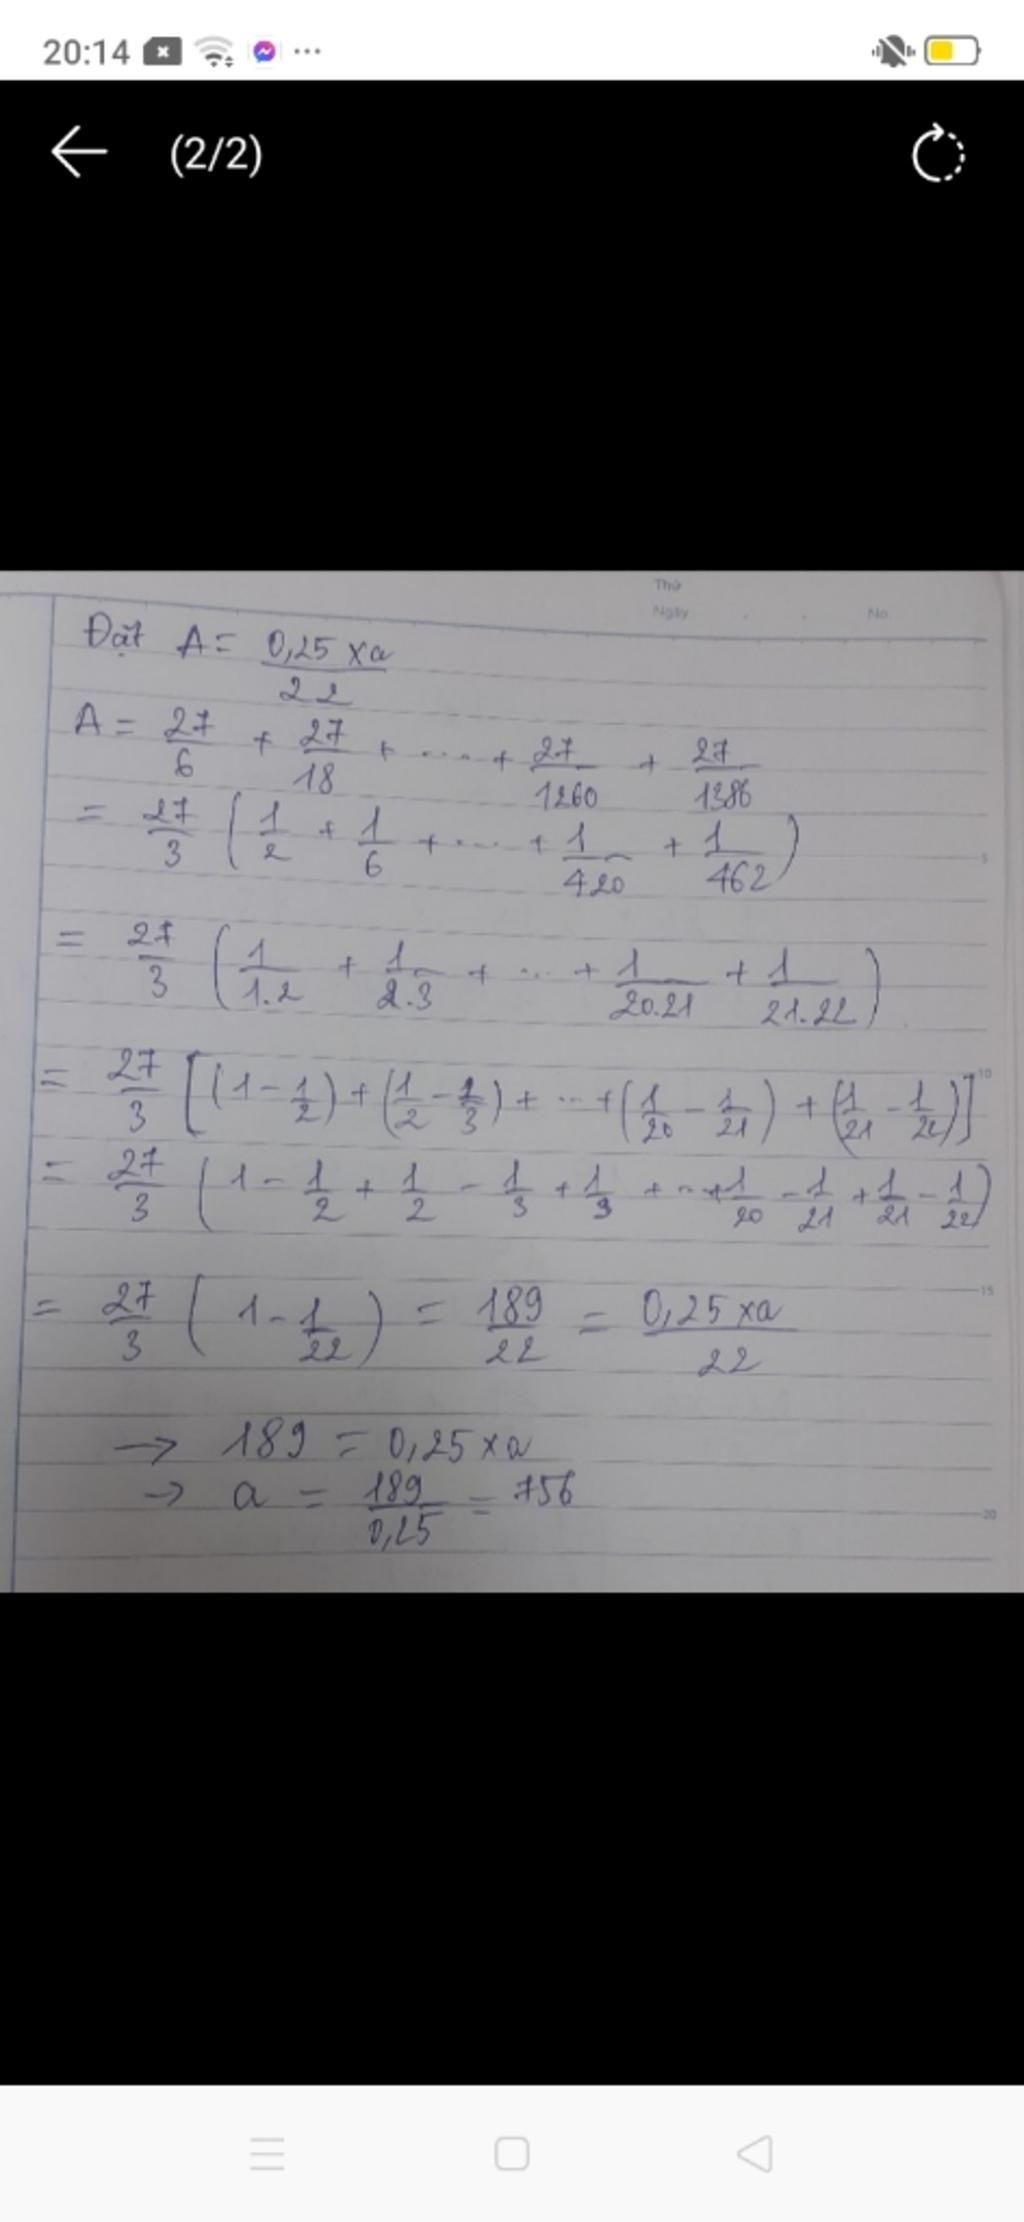 20:14
(2/2)
Thứ
Ngày . . No.
Đặt A = 0,25 x a / 22
A = 27/6 + 27/18 + .... + 27/1260 + 27/1386
= 27/3 ( 1/2 + 1/6 + .... + 1/420 + 1/462 )
5
= 27/3 ( 1/1.2 + 1/2.3 + ... + 1/20.21 + 1/21.22 )
= 27/3 [ (1 - 1/2) + (1/2 - 1/3) + ... + (1/20 - 1/21) + (1/21 - 1/22) ]
10
= 27/3 ( 1 - 1/2 + 1/2 - 1/3 + 1/3 + ... + 1/20 - 1/21 + 1/21 - 1/22 )
= 27/3 ( 1 - 1/22 ) = 189/22 = 0,25 x a / 22
15
→ 189 = 0,25 x a
→ a = 189/0,25 = 756
20